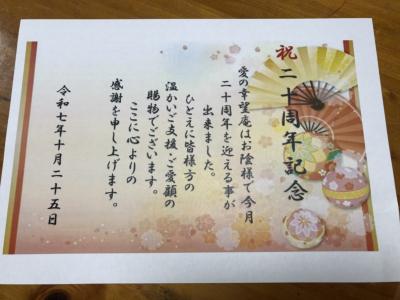 祝 二十周年記念
愛の幸望庵はお陰様で今月
二十周年を迎える事が
出来ました。
ひとえに皆様方の
温かいご支援・ご愛顧の
賜物でございます。
ここに心よりの
感謝を申し上げます。
令和七年十月二十五日